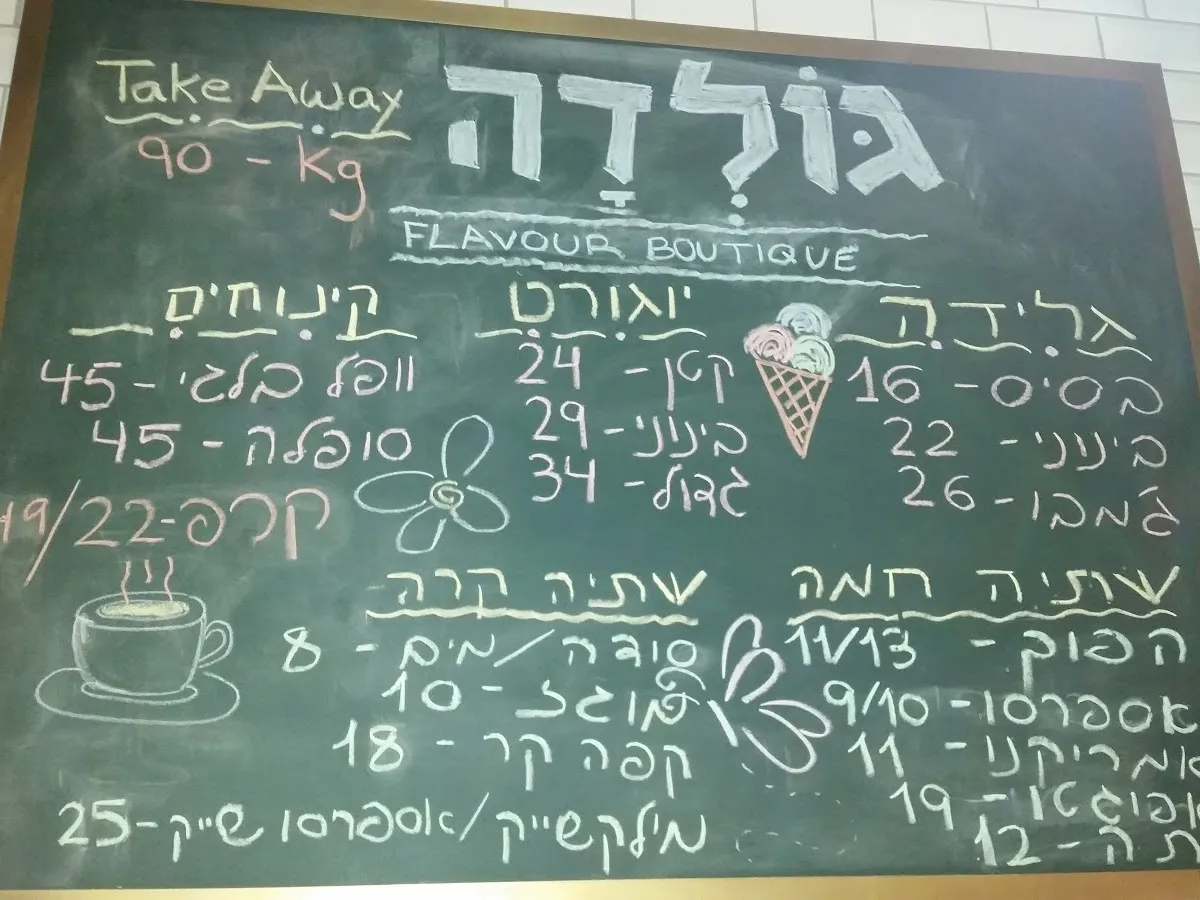 Take Away
90 - Kg
גּוֹלְדָה
FLAVOUR BOUTIQUE
גלידה
בסיס - 16
בינוני - 22
ג'מבו - 26
יוגורט
קטן - 24
בינוני - 29
גדול - 34
קינוחים
וופל בלגי - 45
סופלה - 45
קרפ - 19/22
שתיה חמה
הפוך - 11/13
אספרסו - 9/10
אמריקנו - 11
אפוגטו - 19
תה - 12
שתיה קרה
סודה/מים - 8
מוגז - 10
קפה קר - 18
מילקשייק/אספרסו שייק - 25